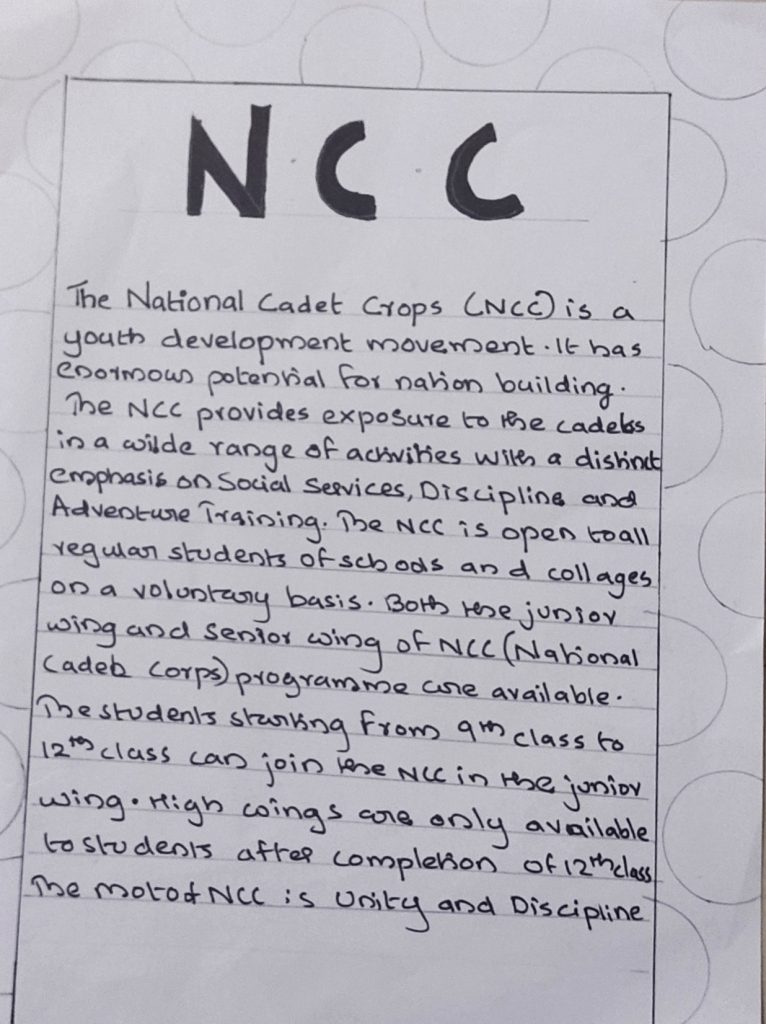 N C C
The National Cadet Crops (NCC) is a
youth development movement. It has
enormous potential for nation building.
The NCC provides exposure to the cadets
in a wilde range of activities with a distinct
emphasis on Social Services, Discipline and
Adventure Training. The NCC is open to all
regular students of schools and collages
on a voluntary basis. Both the junior
wing and senior wing of NCC (National
Cadet Corps) programme are available.
The students starting from 9th class to
12th class can join the NCC in the junior
wing. High wings are only available
to students after completion of 12th class
The moto of NCC is Unity and Discipline